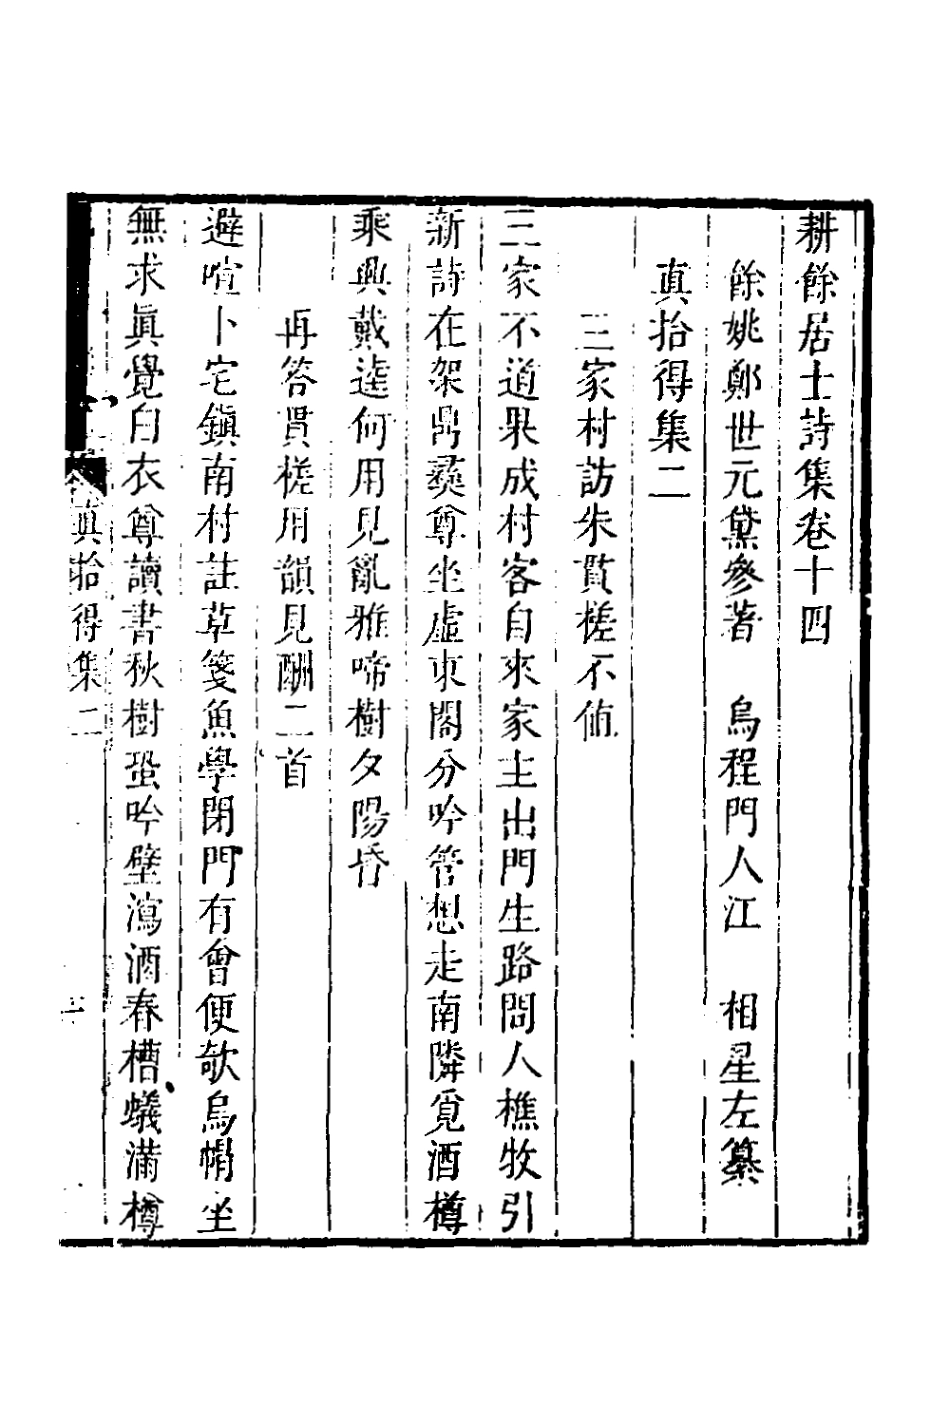 耕餘居士詩集卷十四
餘姚鄭世元黛參著　烏程門人江　相星左纂
真拾得集二
三家村訪朱貫槎不値
三家不道果成村客自來家主出門生路問人樵牧引
新詩在架鼎彞尊坐虛東閣分吟管想走南隣覓酒樽
乘興戴逵何用見亂雅啼樹夕陽昏
再答貫槎用韻見酬二首
避喧卜宅鎭南村註草箋魚學閉門有會便欹烏帽坐
無求眞覺白衣尊讀書秋樹蛩吟壁瀉酒春槽蟻滿樽
真拾得集二